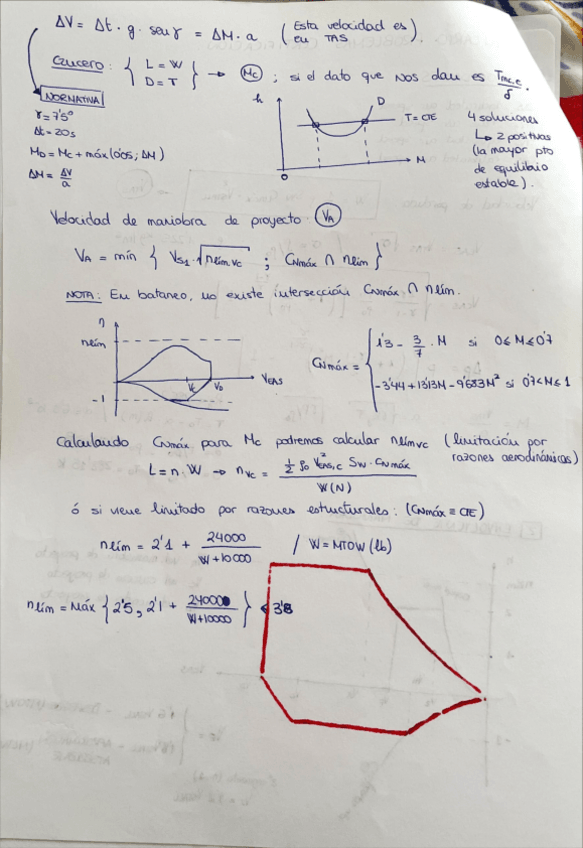 ΔV = Δt · g · senγ = ΔM · a (Esta velocidad es en TAS).
Crucero: { L = W D = T } → Mc ; si el dato que nos dan es Tmc.c/δ.
NORMATIVA
γ = 7'5º
Δt = 20s
M_D = Mc + máx(0'05; ΔM)
ΔM = ΔV/a
h
D
T = CTE
M
0
4 soluciones
↳ 2 positivas
(la mayor pto
de equilibrio
estable).
Velocidad de maniobra de proyecto V_A
V_A = mín { V_S1 · √n_lím.vc ; C_Nmáx ∩ n_lím }
NOTA: En bataneo, no existe intersección C_Nmáx ∩ n_lím.
n
n_lím
-1
V_c
V_D
V_EAS
C_Nmáx = { 1'3 - 3/7 · M si 0 ≤ M ≤ 0'7
-3'44 + 13'13M - 9'683M² si 0'7 < M ≤ 1
Calculando C_Nmáx para Mc podremos calcular n_límvc (limitación por razones aerodinámicas)
L = n · W → n_vc = ½ ρ₀ V²_EAS,C S_W · C_Nmáx / W(N)
ó si viene limitado por razones estructurales: (C_Nmáx ≡ CTE)
n_lím = 2'1 + 24000/(W+10000) / W = MTOW (lb)
n_lím = Máx { 2'5, 2'1 + 24000/(W+10000) } ≤ 3'8